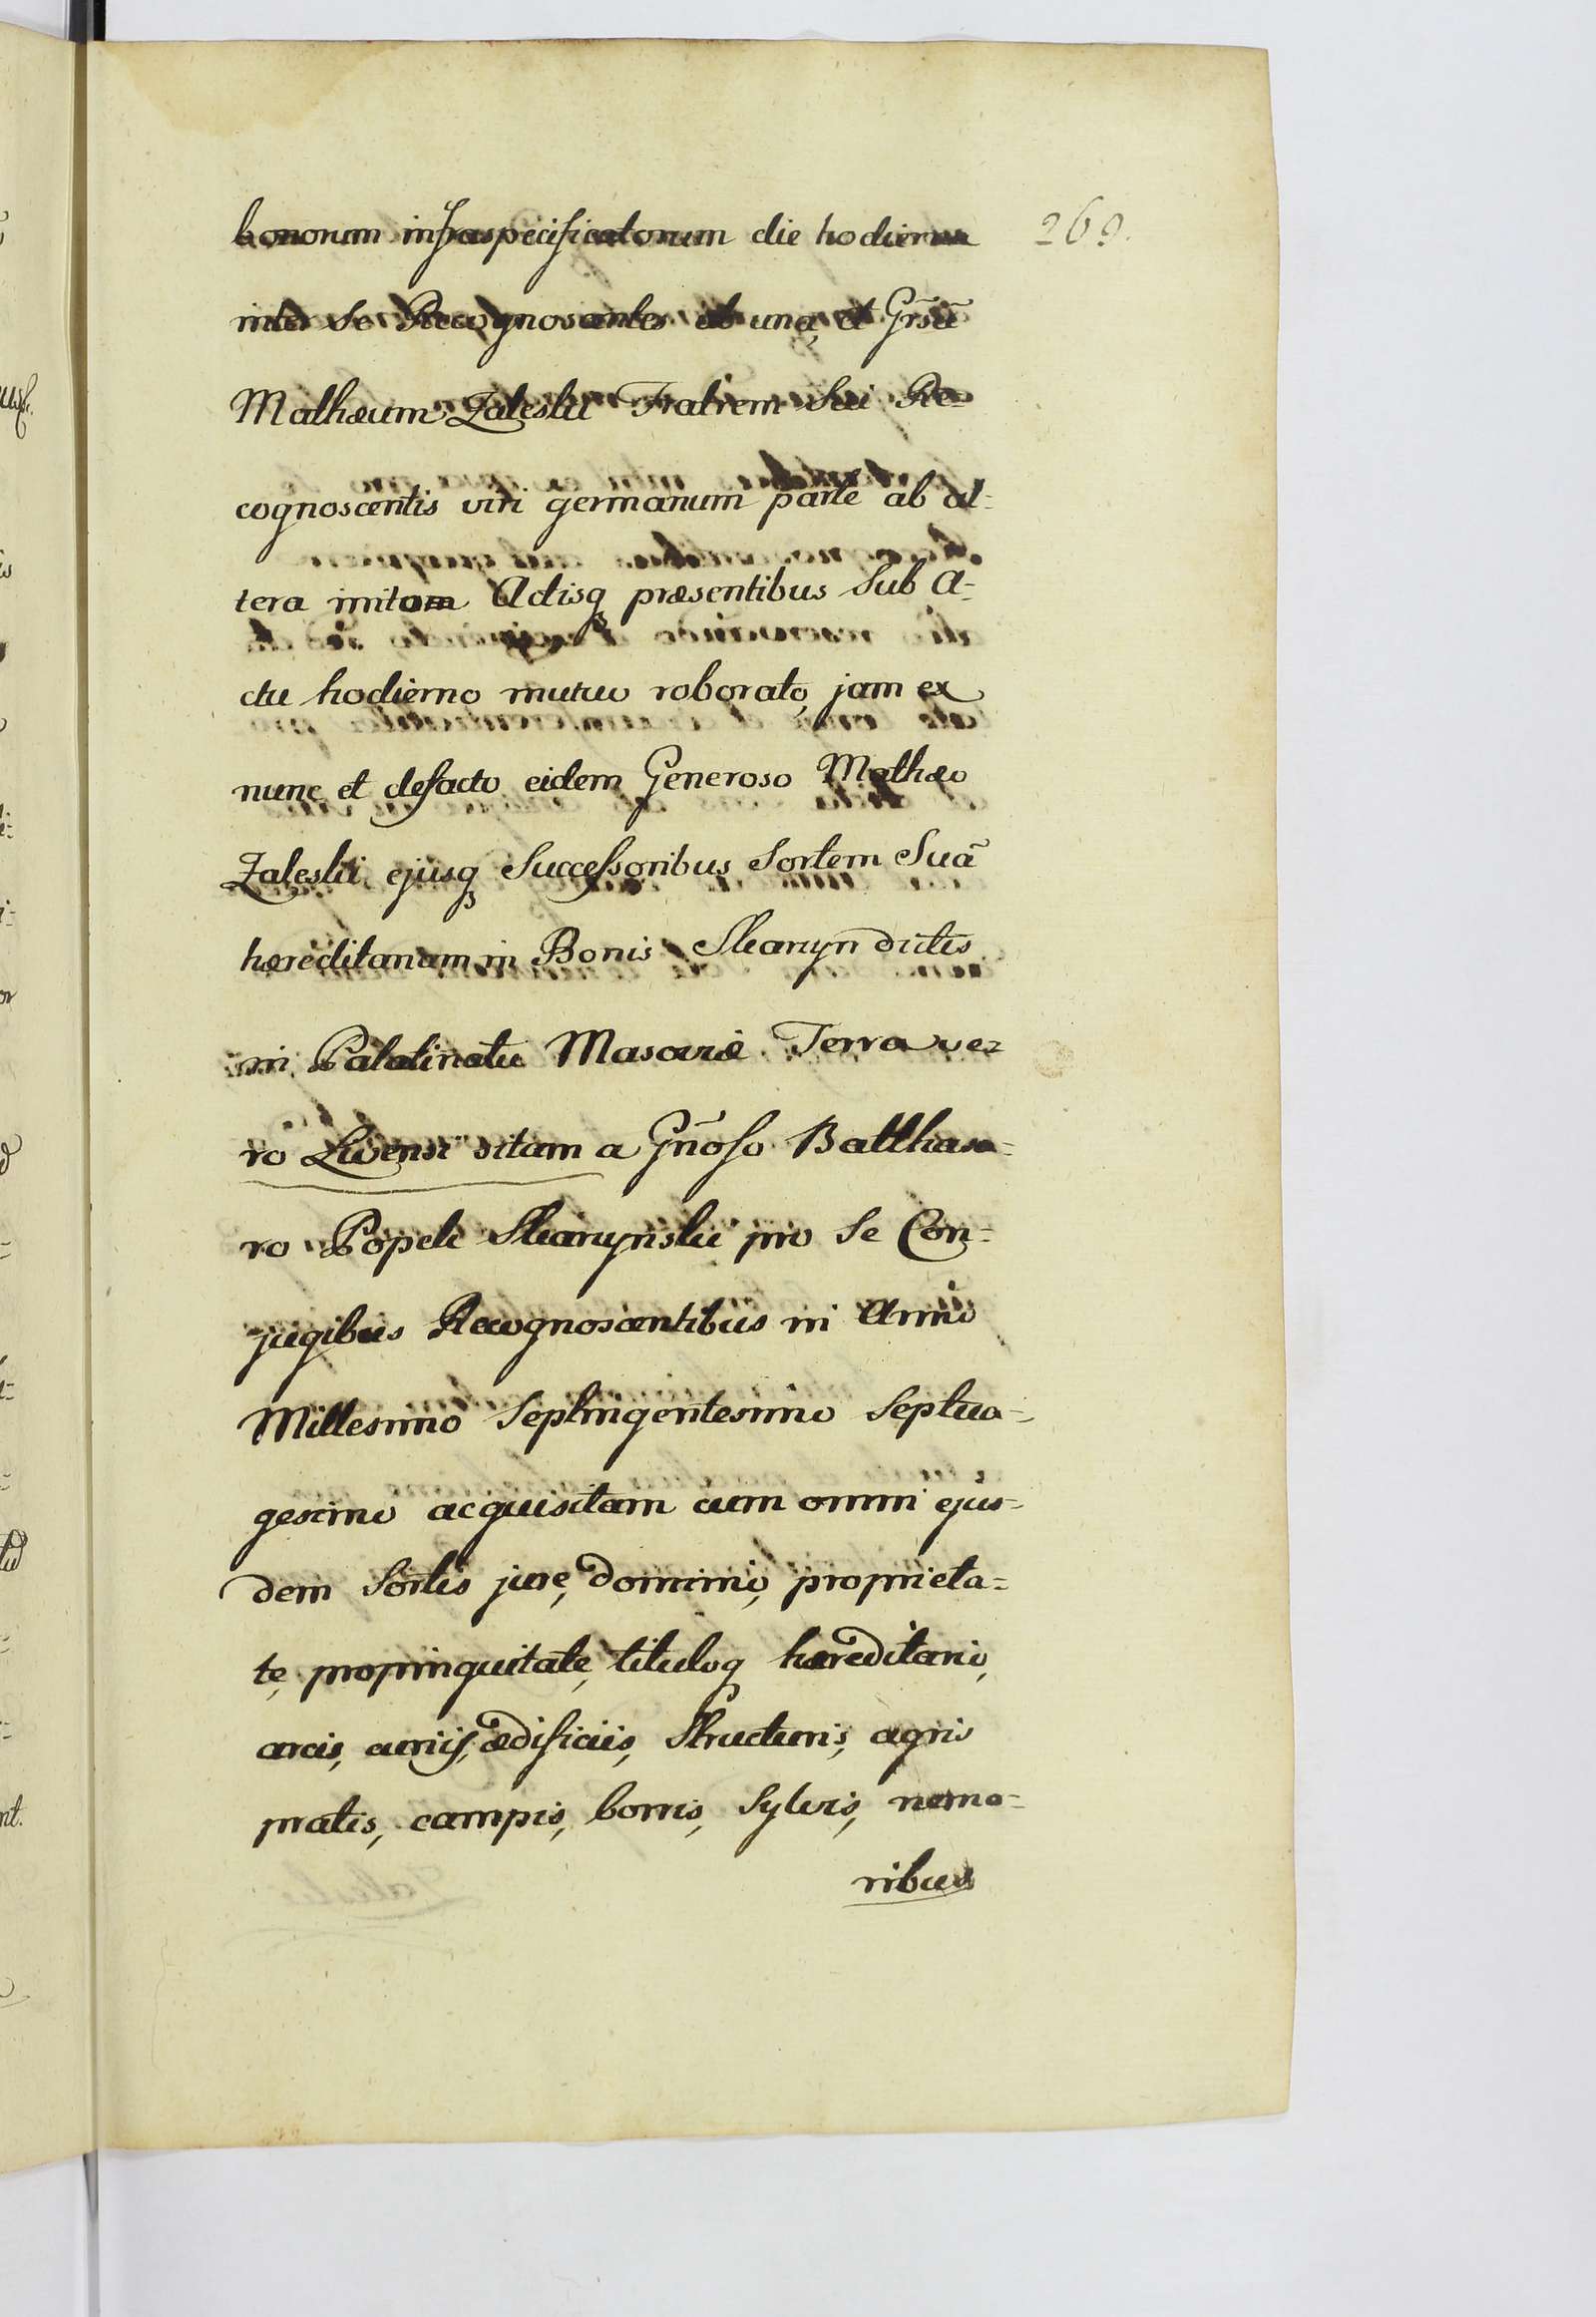 269.
bonorum infraspecificatorum die hodierna
inter se Recognoscentes ab una, et Gnsũ
Mathæum Zaleski Fratrem Sui Re-
cognoscentis viri germanum parte ab al-
tera initam Actisq præsentibus Sub A-
ctu hodierno mutuo roborato, jam ex
nunc et defacto eidem Generoso Mathæo
Zaleski ejusq Successoribus Sortem Suã
hæreditariam in Bonis Skaryn dictis
in Palatinatu Masoviæ Terra ve-
ro Livensi sitam a Gñoso Balthasa-
ro Popek Skarynski pro Se Con-
jugibus Recognoscentibus in Anno
Millesimo Septingentesimo Septua-
gesimo acquisitam cum omni ejus-
dem Sortis jure, dominio, proprieta-
te, propinquitate, tituloq hæreditario,
areis, curiis, ædificiis, Structuris, agris
pratis, campis, borris, Sylvis, nemo-
ribus